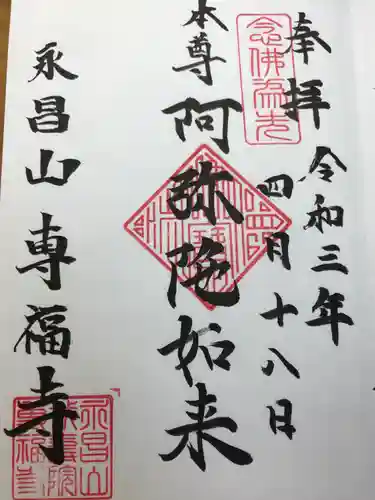 奉拝
令和三年
四月十八日
念佛為先
本尊
阿弥陀如来
永昌山専福寺
永昌山